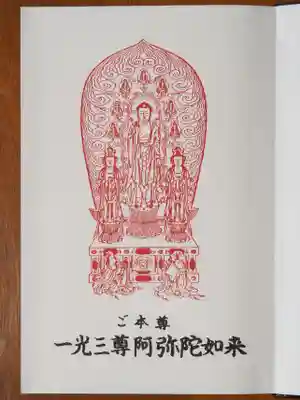 ご本尊
一光三尊阿弥陀如来